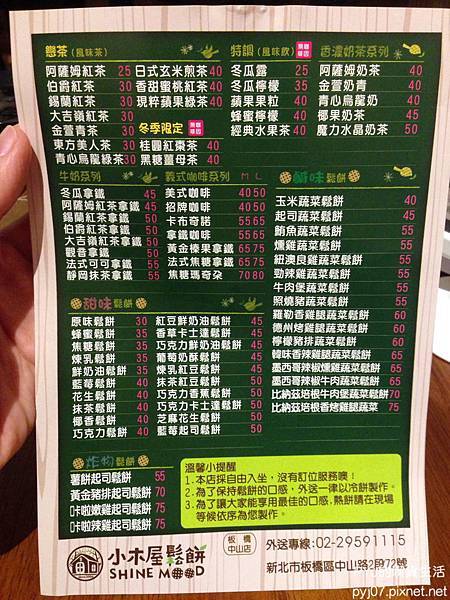 戀茶(風味茶)
阿薩姆紅茶 25
伯爵紅茶 30
錫蘭紅茶 30
大吉嶺紅茶 30
金萱青茶 30
東方美人茶 30
青心烏龍綠茶 30
日式玄米煎茶 40
香甜蜜桃紅茶 40
現榨蘋果綠茶 40
冬季限定
桂圓紅棗茶 40
黑糖薑母茶 40
特調(風味飲)
冬瓜露 25
冬瓜檸檬 35
蘋果果粒 40
蜂蜜檸檬 40
經典水果茶 40
香濃奶茶系列
阿薩姆奶茶 40
金萱奶青 40
青心烏龍奶 40
椰果奶茶 45
魔力水晶奶茶 50
牛奶系列
冬瓜拿鐵 45
阿薩姆紅茶拿鐵 45
錫蘭紅茶拿鐵 50
伯爵紅茶拿鐵 50
大吉嶺紅茶拿鐵 50
觀音拿鐵 50
法式可可拿鐵 55
靜岡抹茶拿鐵 55
義式咖啡系列 M L
美式咖啡 40 50
招牌咖啡 40 50
卡布奇諾 55 65
拿鐵咖啡 55 65
黃金榛果拿鐵 65 75
法式焦糖拿鐵 65 75
焦糖瑪奇朵 70 80
鹹味鬆餅
玉米蔬菜鬆餅 40
起司蔬菜鬆餅 55
鮪魚蔬菜鬆餅 55
燻雞蔬菜鬆餅 55
紐澳良雞蔬菜鬆餅 55
勁辣雞蔬菜鬆餅 55
牛肉堡蔬菜鬆餅 55
照燒豬蔬菜鬆餅 55
羅勒香雞腿蔬菜鬆餅 60
德州烤雞腿蔬菜鬆餅 60
檸檬豬排蔬菜鬆餅 60
韓味香辣雞腿蔬菜鬆餅 65
墨西哥辣椒燻雞蔬菜鬆餅 65
墨西哥辣椒牛肉蔬菜鬆餅 65
比納茲培根牛肉堡蔬菜鬆餅 70
比納茲培根香烤雞腿蔬菜 75
甜味鬆餅
原味鬆餅 30
蜂蜜鬆餅 35
焦糖鬆餅 35
煉乳鬆餅 35
鮮奶油鬆餅 35
藍莓鬆餅 40
花生鬆餅 40
抹茶鬆餅 40
椰香鬆餅 40
巧克力鬆餅 40
紅豆鮮奶油鬆餅 45
香草卡士達鬆餅 45
巧克力鮮奶油鬆餅 45
葡萄奶酥鬆餅 45
煉乳紅豆鬆餅 45
抹茶紅豆鬆餅 50
巧克力香蕉鬆餅 50
巧克力卡士達鬆餅 50
芝麻花生鬆餅 50
藍莓起司鬆餅 50
炸物鬆餅
薯餅起司鬆餅 55
黃金豬排起司鬆餅 70
咔啦嫩雞起司鬆餅 75
咔啦辣雞起司鬆餅 75
溫馨小提醒
1.本店採自由入坐,沒有訂位服務噢!
2.為了保持鬆餅的口感,外送一律以冷餅製作。
3.為了讓大家能享用最佳的口感,熱餅請在現場
等候依序為您製作。
小木屋鬆餅
SHINE MOOD
板橋
中山店
外送專線:02-29591115
新北市板橋區中山路2段72號
pyj07.pixnet.net